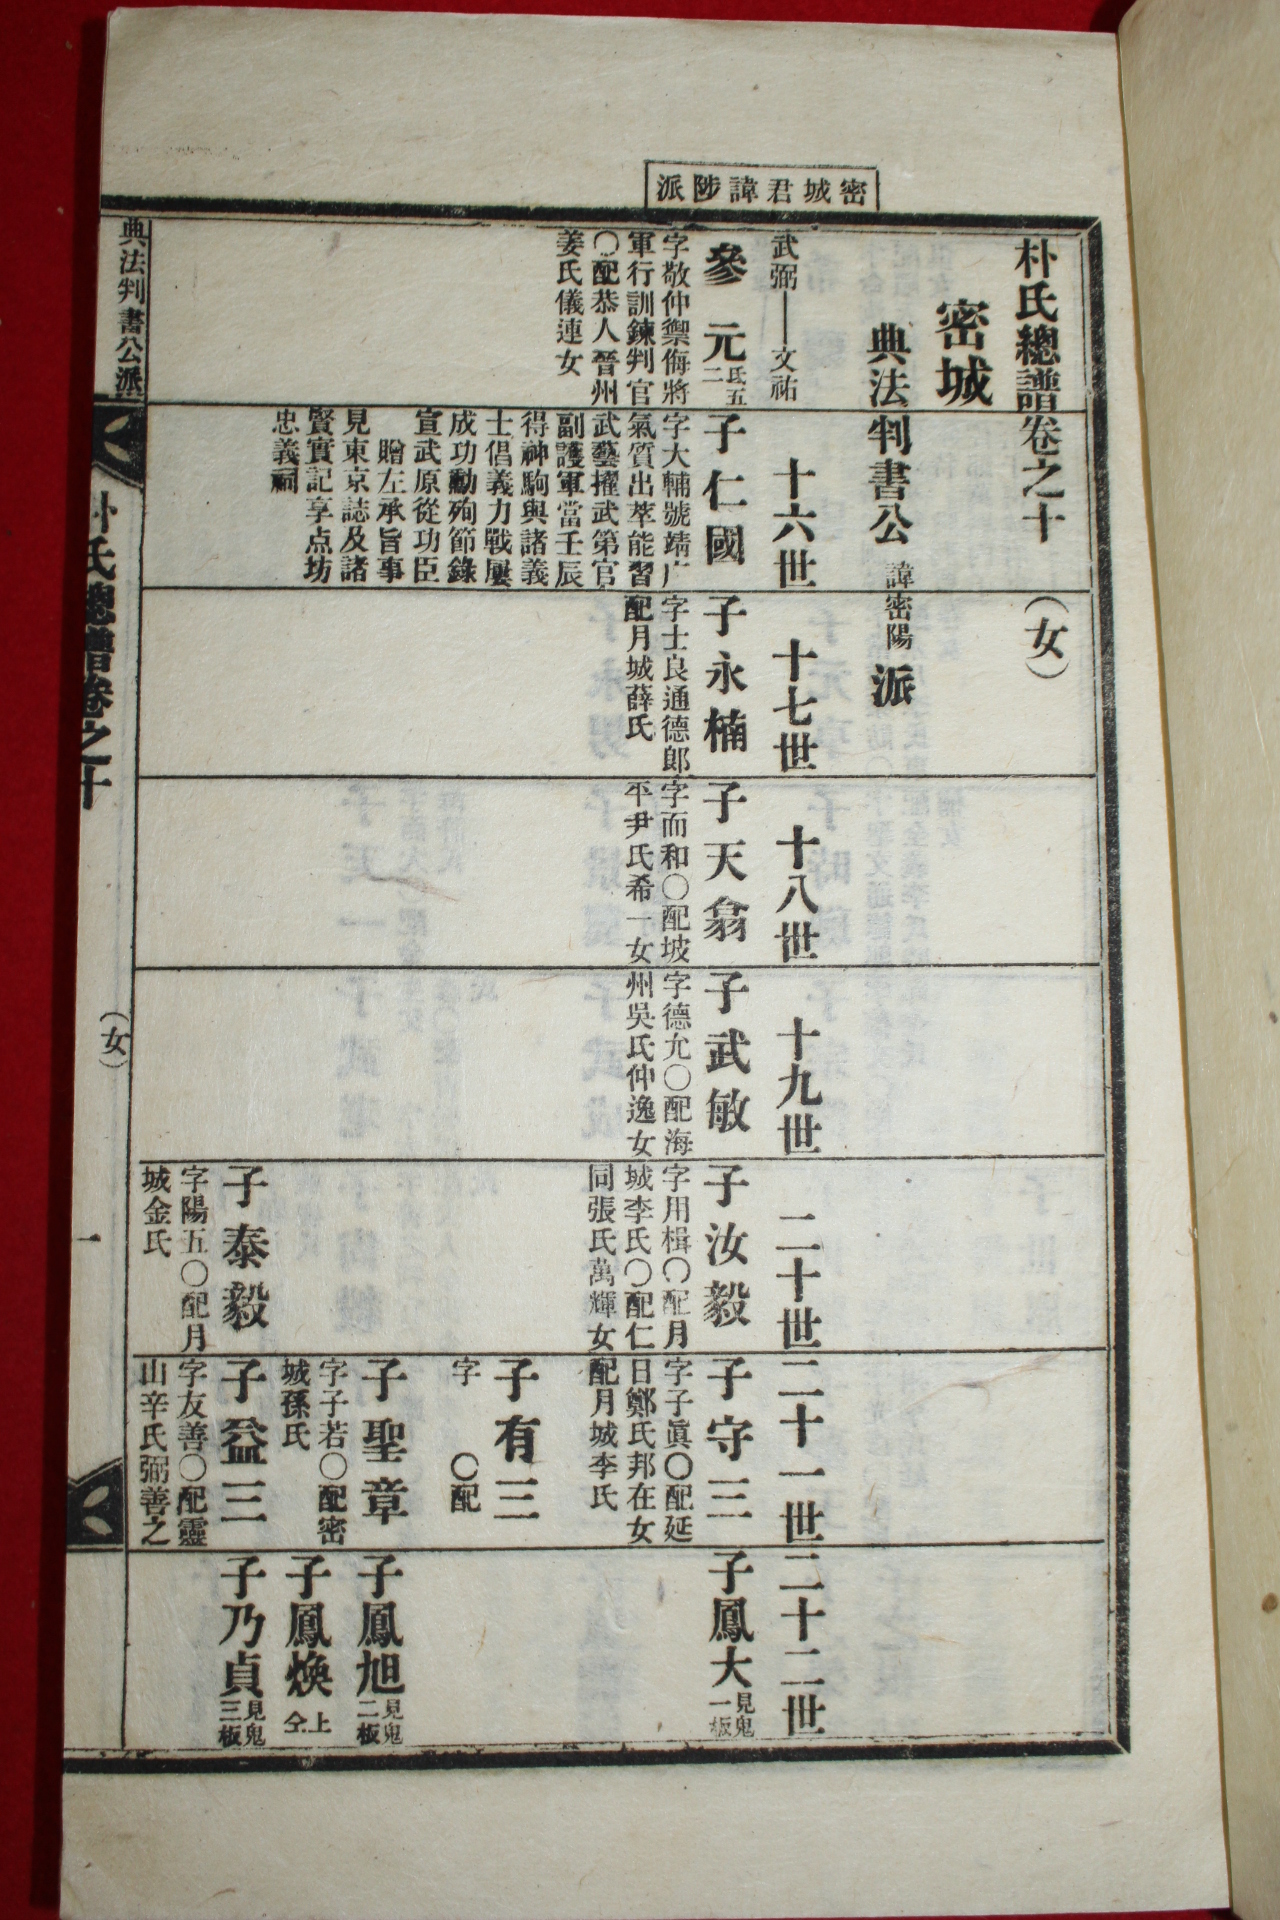 密城君諱陟派
朴氏總譜卷之十 (女)
密城
典法判書公諱密陽派
武弼——文祐
十六世
十七世
十八世
十九世
二十世
二十一世
二十二世
參元氏五二
字敬仲禦侮將
軍行訓鍊判官
〇配恭人晉州
姜氏儀連女
子仁國
字大輔號靖广
氣質出萃能習
武藝擢武第官
副護軍當壬辰
得神駒與諸義
士倡義力戰屢
成功勳殉節錄
宣武原從功臣
贈左承旨事
見東京誌及諸
賢實記享点坊
忠義祠
子永楠
字士良通德郞
配月城薛氏
子天翕
字而和〇配坡
平尹氏希一女
子武敏
字德允〇配海
州吳氏仲逸女
子汝毅
字用楫〇配月
城李氏〇配仁
同張氏萬輝女
子守三
字子眞〇配延
日鄭氏邦在女
配月城李氏
子鳳大見鬼一板
子有三
字 〇配
子聖章
字子若〇配密
城孫氏
子鳳旭見鬼二板
子鳳煥上仝
子泰毅
字陽五〇配月
城金氏
子益三
字友善〇配靈
山辛氏弼善之
子乃貞見鬼三板
典法判書公派
朴氏總譜卷之十
(女)
一